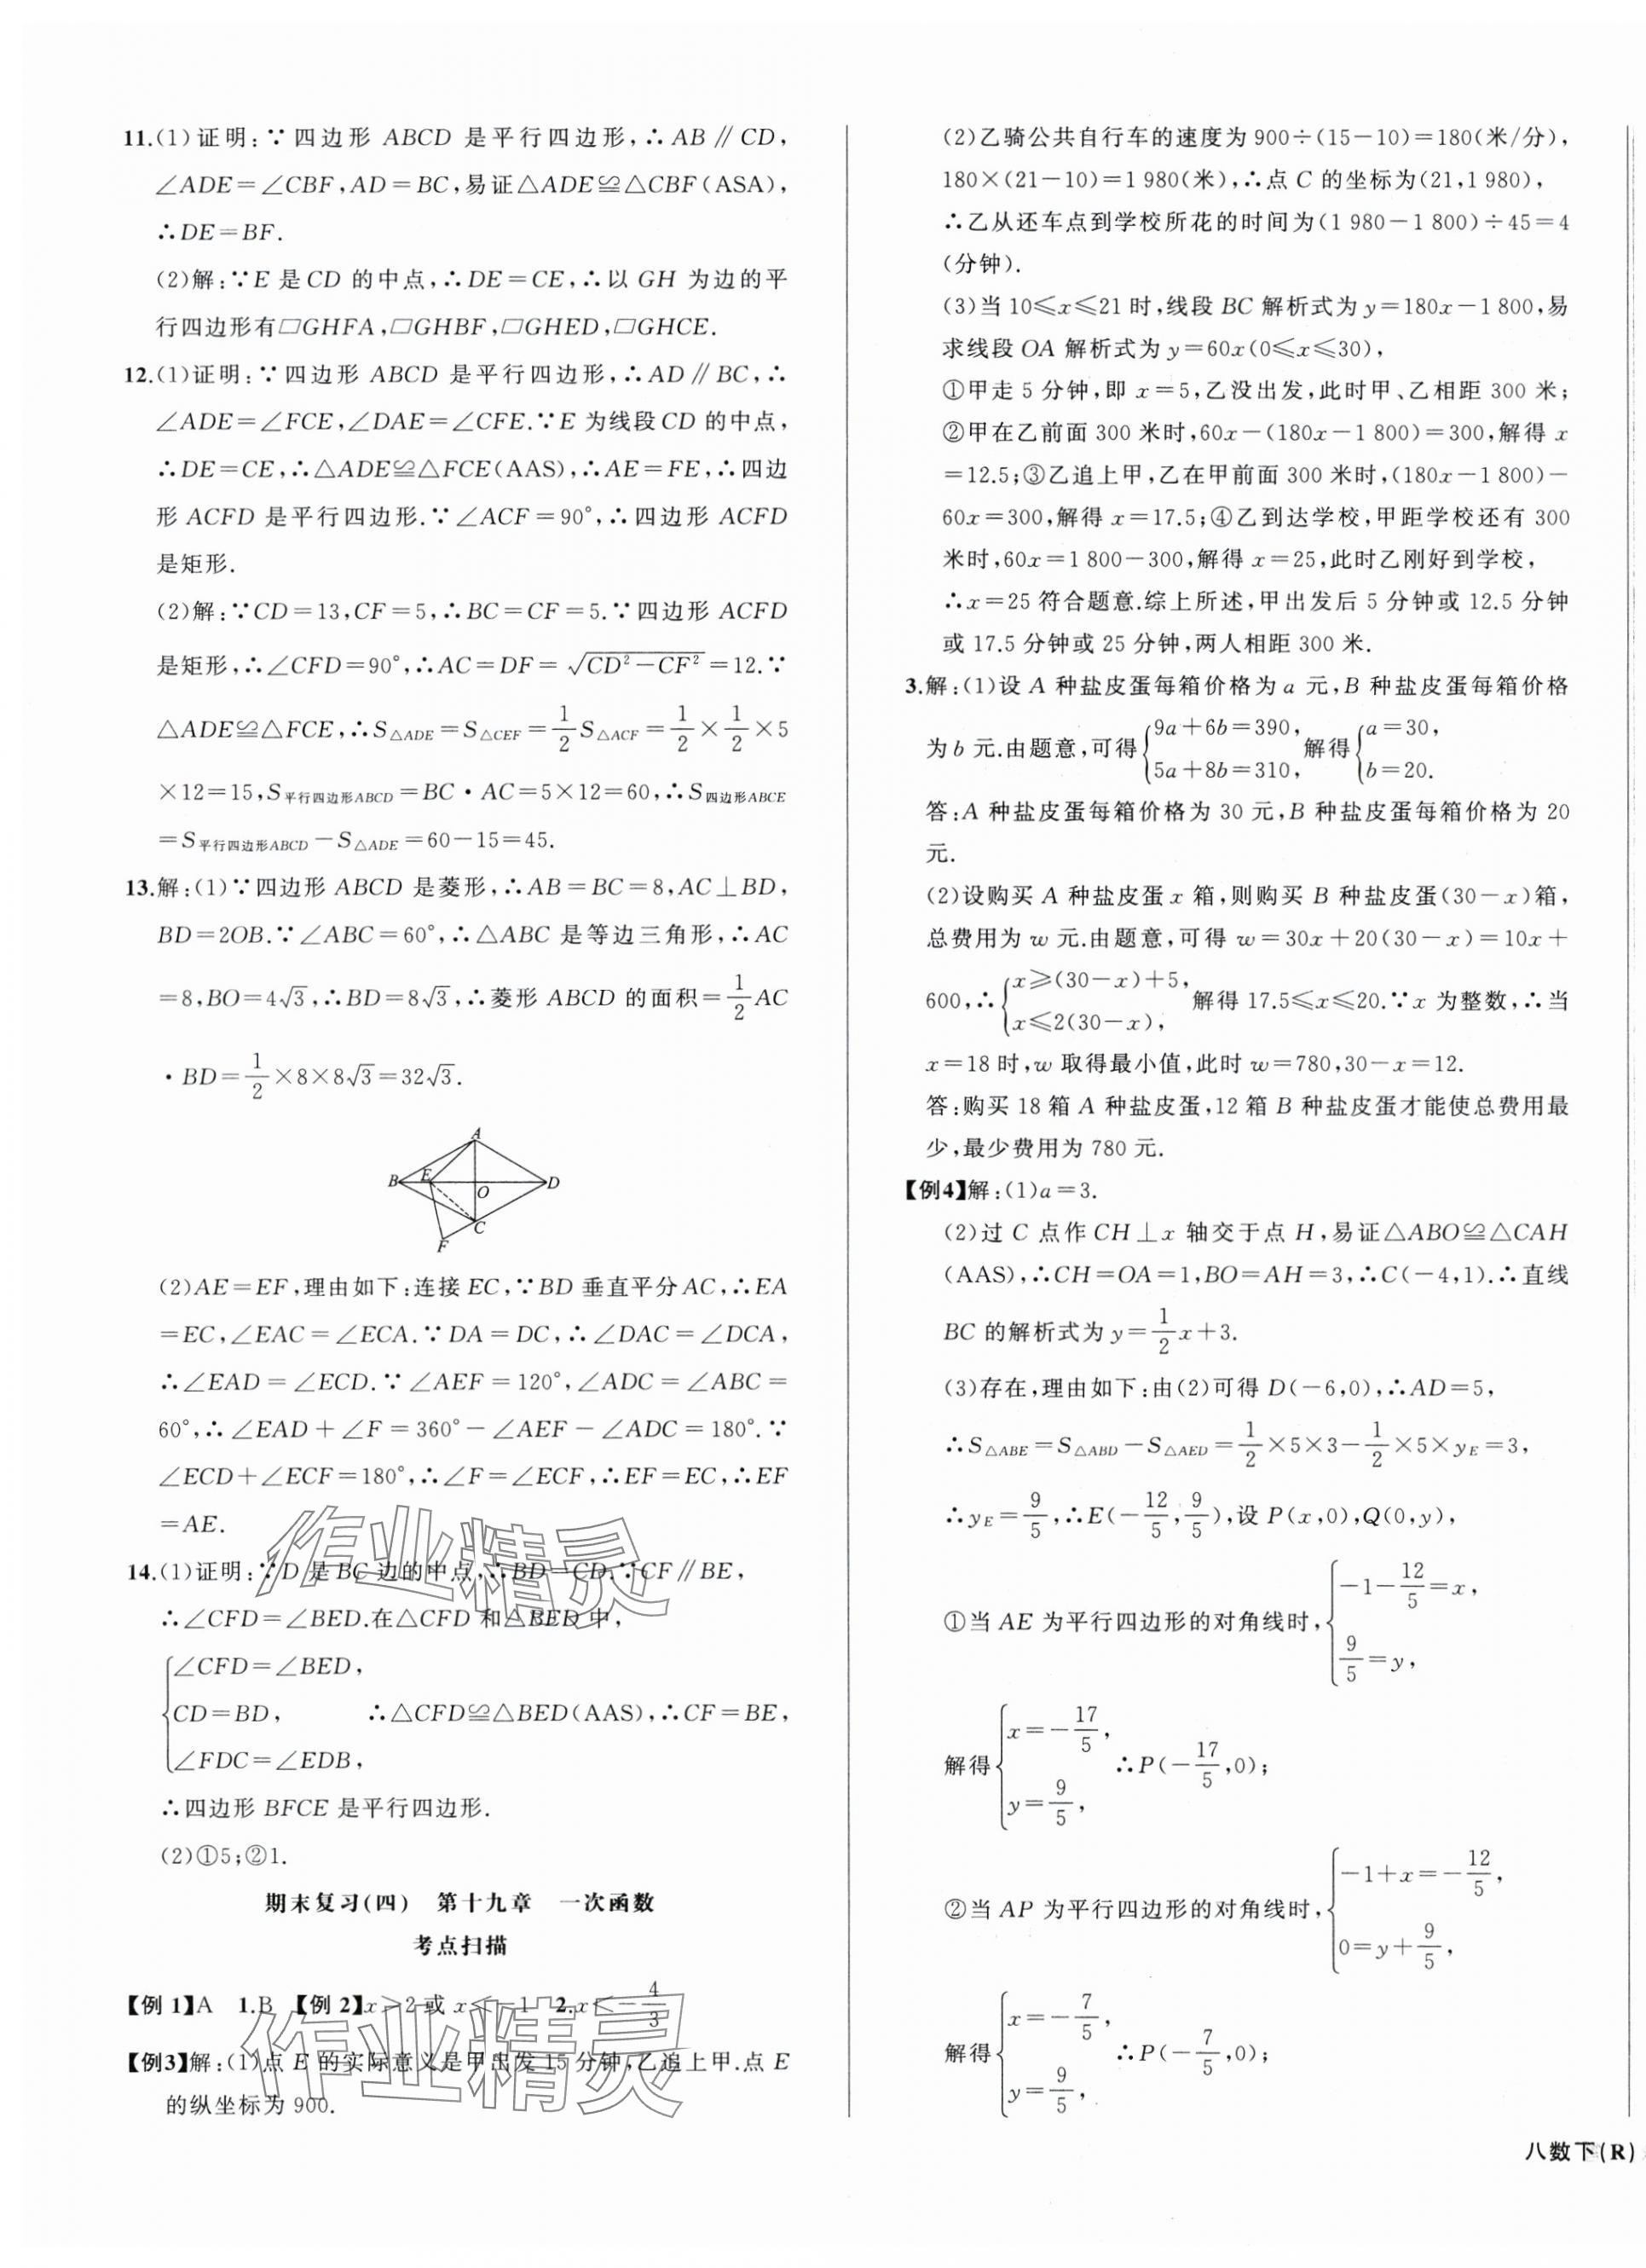 11.(1)证明:∵四边形 ABCD 是平行四边形,∴AB∥CD,
∠ADE=∠CBF,AD=BC,易证△ADE≌△CBF(ASA),
∴DE=BF.
(2)解:∵E 是 CD 的中点,∴DE=CE,∴以 GH 为边的平
行四边形有▱GHFA,▱GHBF,▱GHED,▱GHCE.
12.(1)证明:∵四边形 ABCD 是平行四边形,∴AD∥BC,∴
∠ADE=∠FCE,∠DAE=∠CFE.∵E 为线段 CD 的中点,
∴DE=CE,∴△ADE≌△FCE(AAS),∴AE=FE,∴四边
形 ACFD 是平行四边形.∵∠ACF=90°,∴四边形 ACFD
是矩形.
(2)解:∵CD=13,CF=5,∴BC=CF=5.∵四边形 ACFD
是矩形,∴∠CFD=90°,∴AC=DF=√(CD²-CF²)=12.∵
△ADE≌△FCE,∴S△ADE=S△CEF=1/2S△ACF=1/2×1/2×5
×12=15,S平行四边形ABCD=BC·AC=5×12=60,∴S四边形ABCE
=S平行四边形ABCD-S△ADE=60-15=45.
13.解:(1)∵四边形 ABCD 是菱形,∴AB=BC=8,AC⊥BD,
BD=2OB.∵∠ABC=60°,∴△ABC 是等边三角形,∴AC
=8,BO=4√3,∴BD=8√3,∴菱形 ABCD 的面积=1/2AC
·BD=1/2×8×8√3=32√3.
A
B E O D
C
F
(2)AE=EF,理由如下:连接 EC,∵BD 垂直平分 AC,∴EA
=EC,∠EAC=∠ECA.∵DA=DC,∴∠DAC=∠DCA,
∴∠EAD=∠ECD.∵∠AEF=120°,∠ADC=∠ABC=
60°,∴∠EAD+∠F=360°-∠AEF-∠ADC=180°.∵
∠ECD+∠ECF=180°,∴∠F=∠ECF,∴EF=EC,∴EF
=AE.
作业精灵
14.(1)证明:∵D 是 BC 边的中点,∴BD=CD.∵CF∥BE,
∴∠CFD=∠BED.在△CFD 和△BED 中,
∠CFD=∠BED,
CD=BD, ∴△CFD≌△BED(AAS),∴CF=BE,
∠FDC=∠EDB,
∴四边形 BFCE 是平行四边形.
(2)①5;②1.
期末复习(四) 第十九章 一次函数
考点扫描
【例1】A 1.B 【例2】x>2 或 x<-1 2.x<-4/3
作业精灵
【例3】解:(1)点 E 的实际意义是甲出发 15 分钟,乙追上甲.点 E
的纵坐标为 900.
(2)乙骑公共自行车的速度为900÷(15-10)=180(米/分),
180×(21-10)=1 980(米),∴点 C 的坐标为(21,1 980),
∴乙从还车点到学校所花的时间为(1 980-1 800)÷45=4
(分钟).
(3)当 10≤x≤21 时,线段 BC 解析式为 y=180x-1 800,易
求线段 OA 解析式为 y=60x(0≤x≤30),
①甲走 5 分钟,即 x=5,乙没出发,此时甲、乙相距 300 米;
②甲在乙前面 300 米时,60x-(180x-1 800)=300,解得 x
=12.5;③乙追上甲,乙在甲前面 300 米时,(180x-1 800)-
60x=300,解得 x=17.5;④乙到达学校,甲距学校还有 300
米时,60x=1 800-300,解得 x=25,此时乙刚好到学校,
∴x=25 符合题意.综上所述,甲出发后 5 分钟或 12.5 分钟
或 17.5 分钟或 25 分钟,两人相距 300 米.
3.解:(1)设 A 种盐皮蛋每箱价格为 a 元,B 种盐皮蛋每箱价格
为 b 元.由题意,可得{9a+6b=390, 5a+8b=310,解得{a=30, b=20.
答:A 种盐皮蛋每箱价格为 30 元,B 种盐皮蛋每箱价格为 20
元.
(2)设购买 A 种盐皮蛋 x 箱,则购买 B 种盐皮蛋(30-x)箱,
总费用为 w 元.由题意,可得 w=30x+20(30-x)=10x+
600,∴{x≥(30-x)+5, x≤2(30-x), 解得 17.5≤x≤20.∵x 为整数,∴当
x=18 时,w 取得最小值,此时 w=780,30-x=12.
答:购买 18 箱 A 种盐皮蛋,12 箱 B 种盐皮蛋才能使总费用最
少,最少费用为 780 元.
【例4】解:(1)a=3.
(2)过 C 点作 CH⊥x 轴交于点 H,易证△ABO≌△CAH
(AAS),∴CH=OA=1,BO=AH=3,∴C(-4,1).∴直线
BC 的解析式为 y=1/2x+3.
(3)存在,理由如下:由(2)可得 D(-6,0),∴AD=5,
∴S△ABE=S△ABD-S△AED=1/2×5×3-1/2×5×yE=3,
∴yE=9/5,∴E(-12/5,9/5),设 P(x,0),Q(0,y),
①当 AE 为平行四边形的对角线时,{-1-12/5=x, 9/5=y,
解得{x=-17/5, y=9/5, ∴P(-17/5,0);
②当 AP 为平行四边形的对角线时,{-1+x=-12/5, 0=y+9/5,
解得{x=-7/5, y=9/5, ∴P(-7/5,0);
八数下(R)